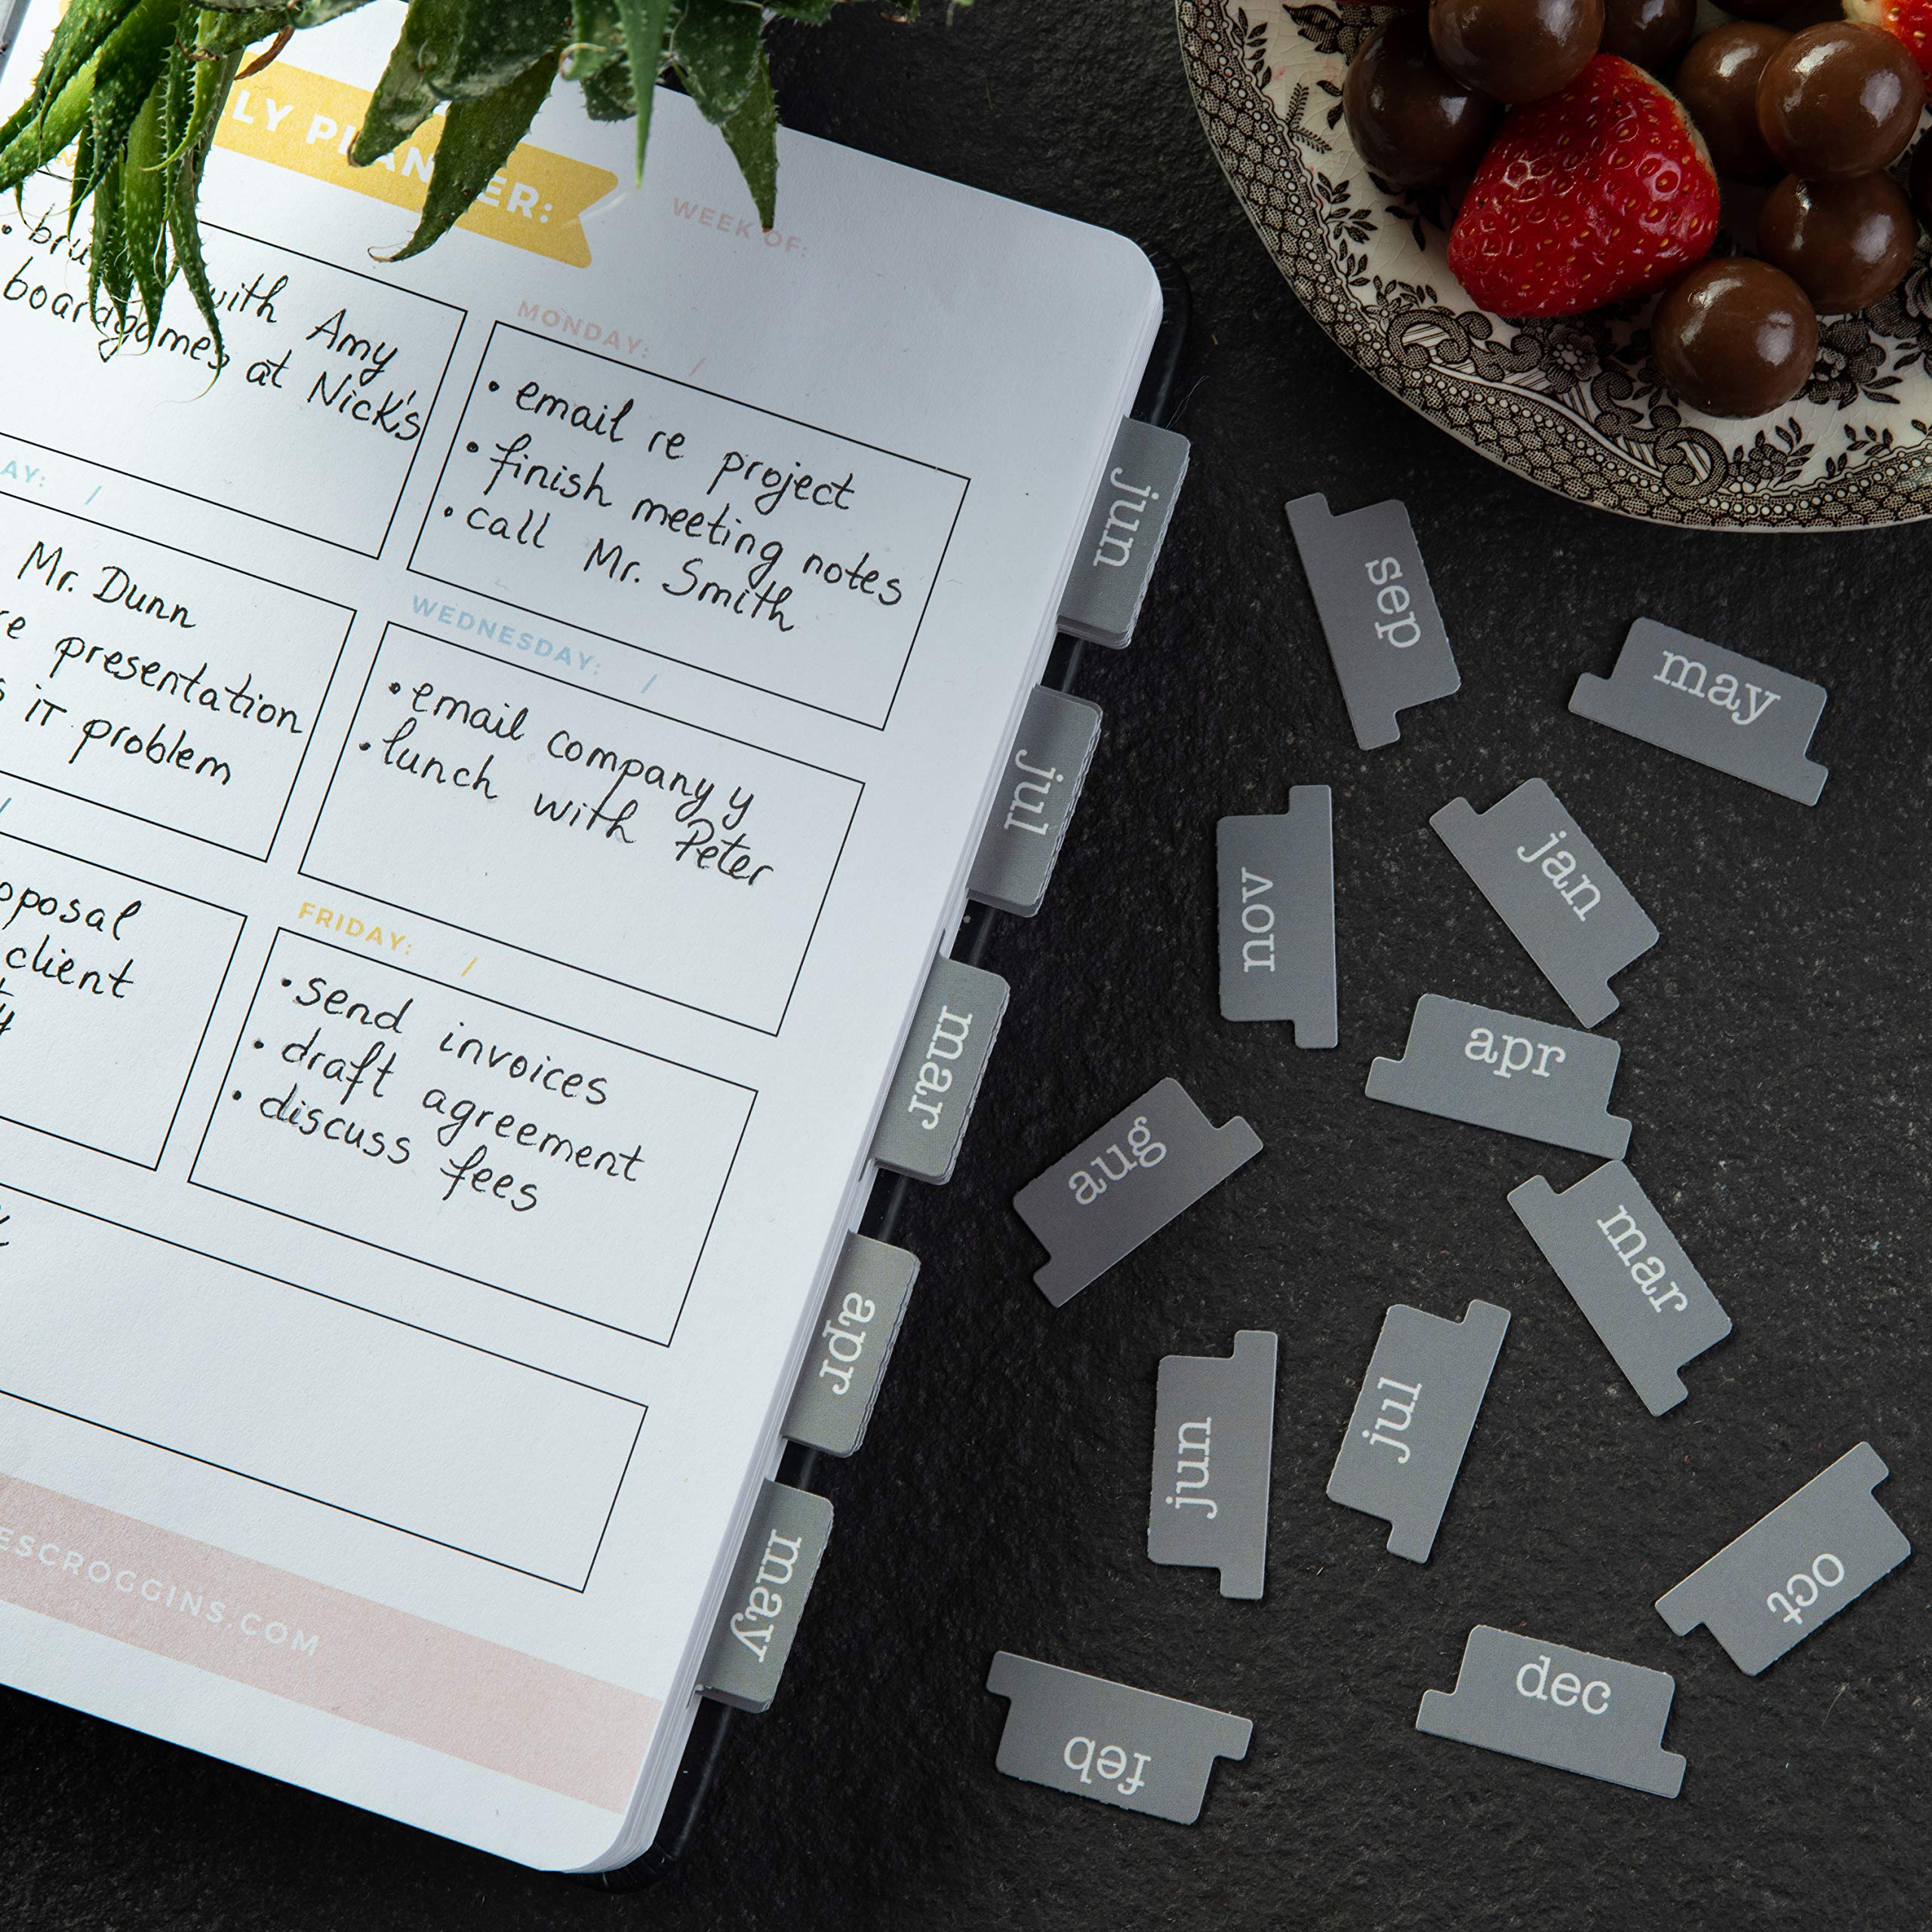 LY PLANNER:
WEEK OF:
with Amy
boardgames at Nick's
MONDAY: /
• email re project
• finish meeting notes
• call Mr. Smith
AY: /
Mr. Dunn
re presentation
s IT problem
WEDNESDAY: /
• email company y
• lunch with Peter
oposal
client
FRIDAY: /
• send invoices
• draft agreement
• discuss fees
ESCROGGINS.COM
jun
jul
mar
apr
may
sep
may
nov
jan
apr
aug
mar
jun
jul
oct
feb
dec